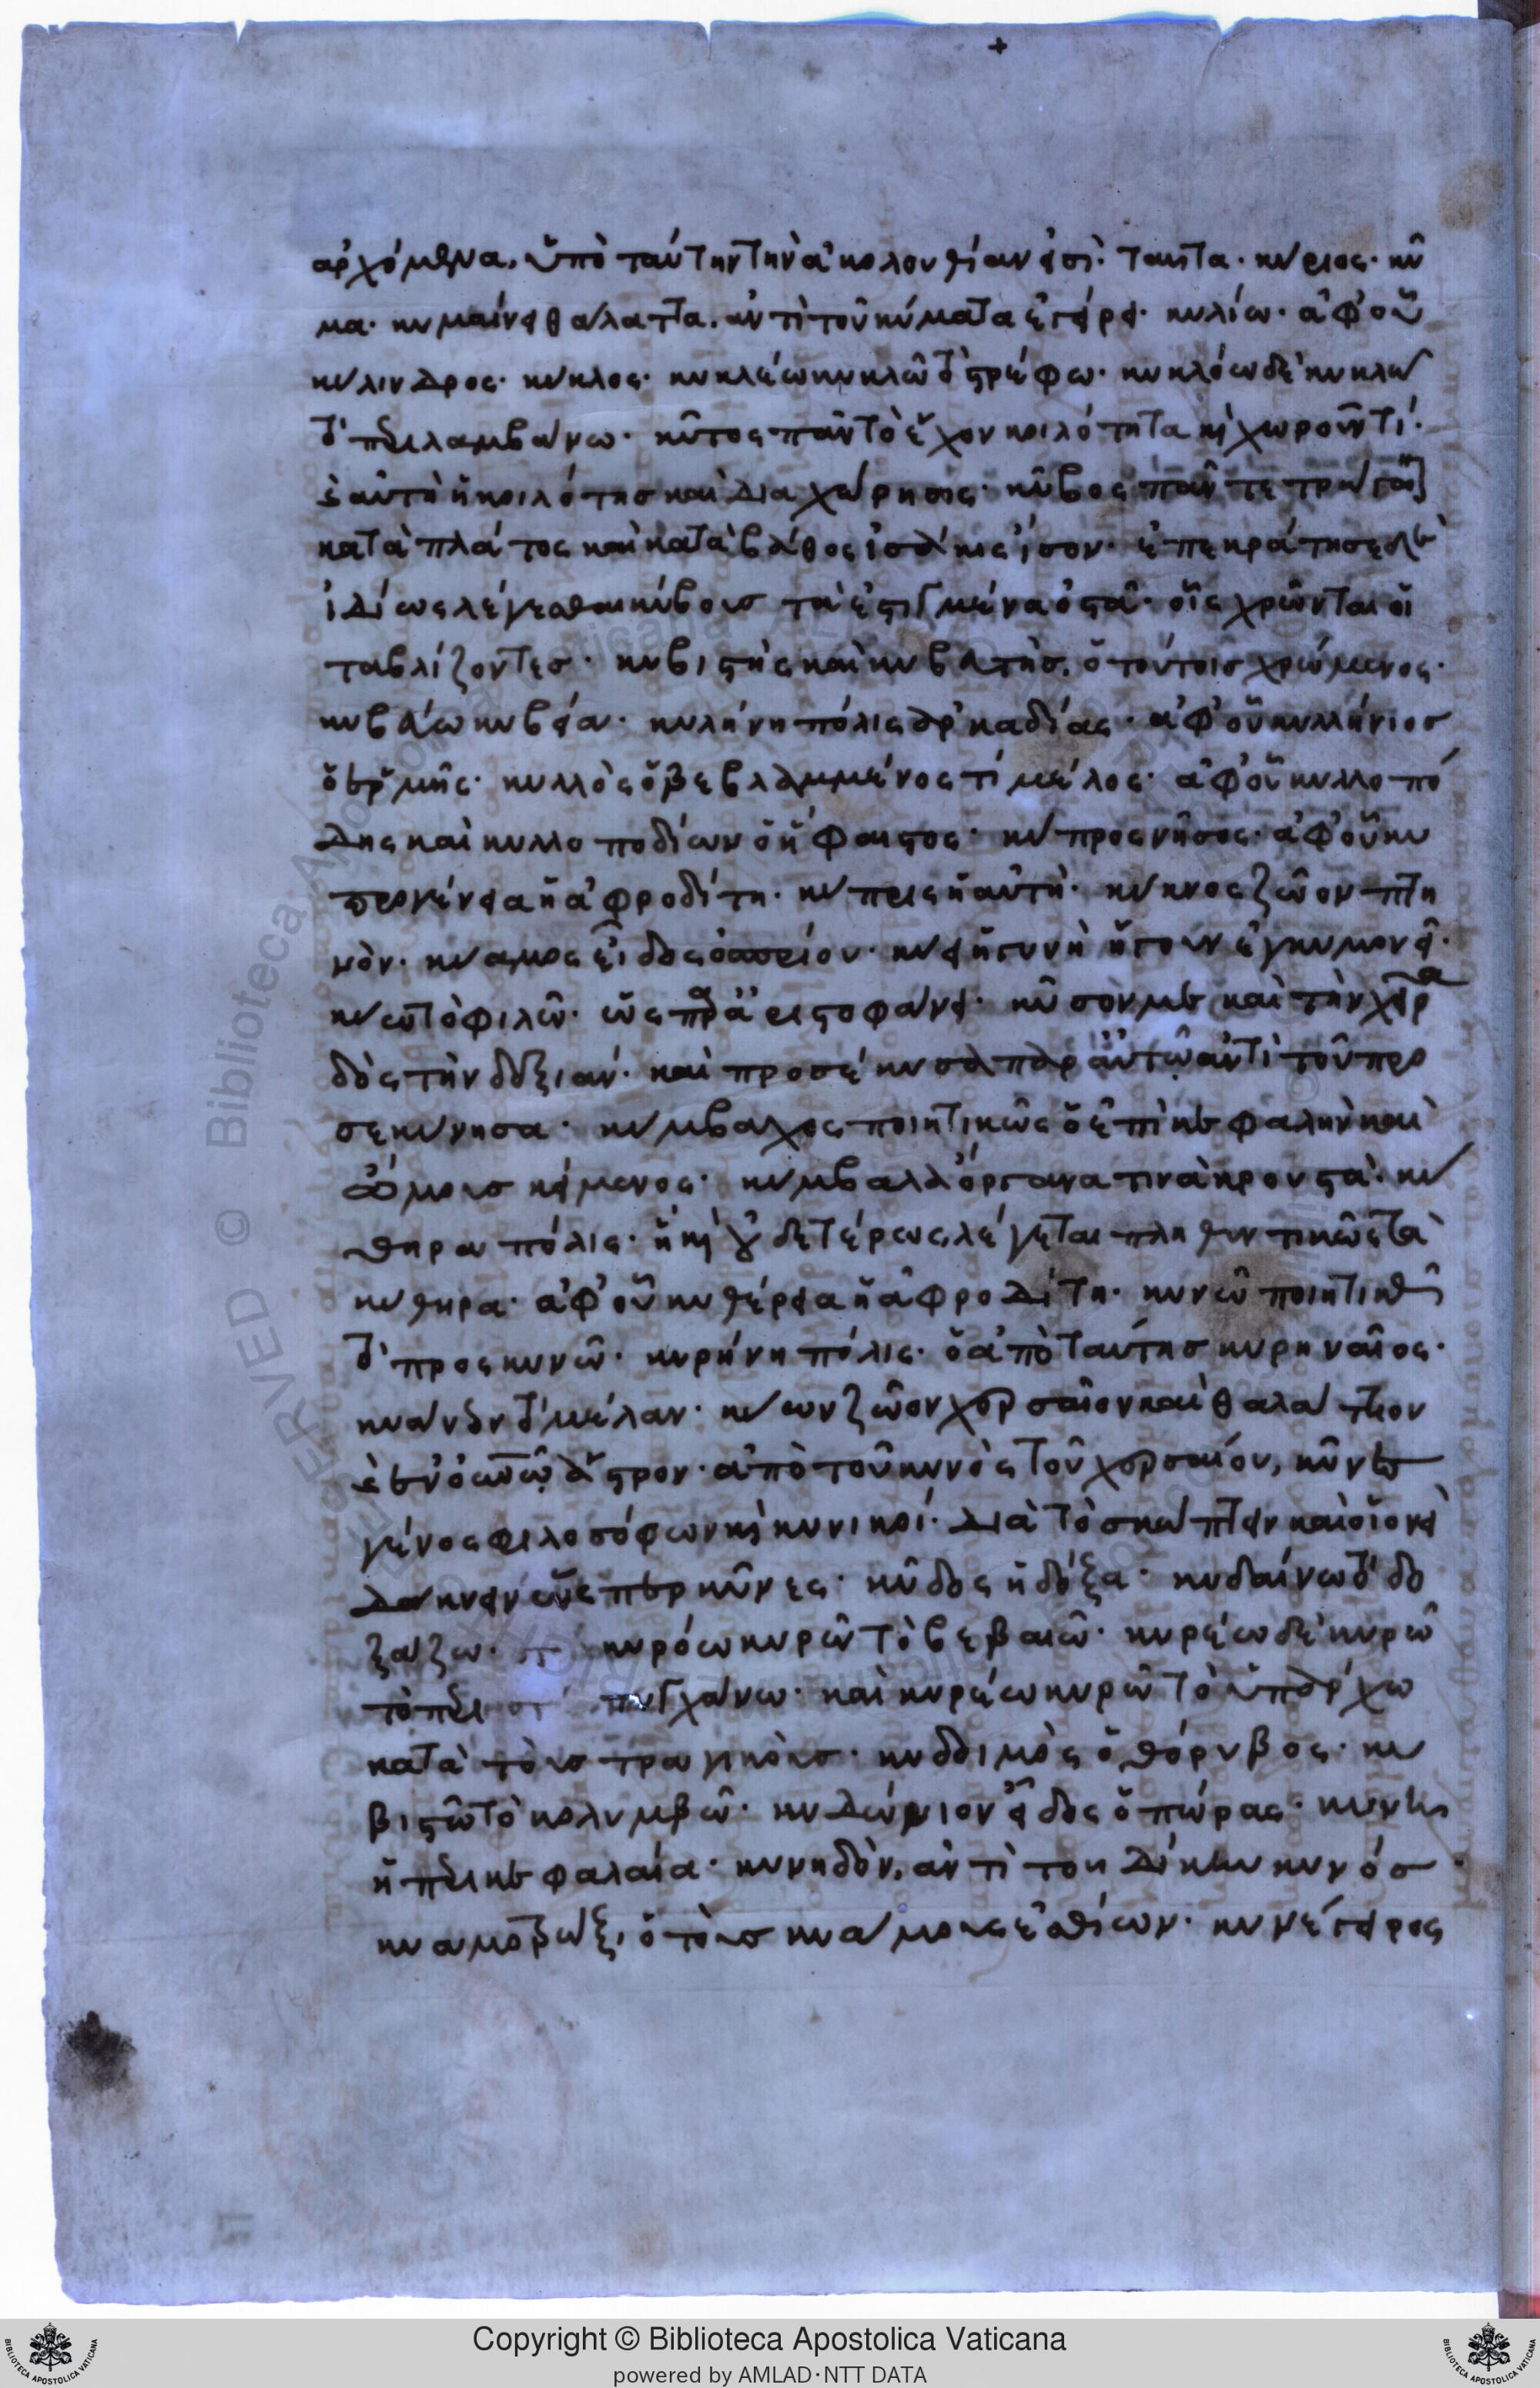 ἀρχόμενα, ὑπὸ ταύτην τὴν ἀκολουθίαν εἰσὶ ταῦτα· κύριος· κῦ
μα· κυμαίνει θάλαττα, ἀντὶ τοῦ κύματα ἐγείρει· κυλίω· ἀφ' οὗ
κύλινδρος· κύκλος· κυκλέω κυκλῶ τὸ στρέφω· κυκλόω δὲ κυκλῶ
τὸ περιλαμβάνω· κῦτος πᾶν τὸ ἔχον κοιλότητα καὶ χωροῦν τί·
ἢ αὐτὴ ἡ κοιλότης καὶ διαχώρησις· κῦβος πᾶν τετράγωνον
κατὰ πλάτος καὶ κατὰ βάθος ἰσάκις ἴσον· ἐπεκράτησε δὲ
ἰδίως λέγεσθαι κύβοις τὰ ἐστιγμένα ὀστᾶ· οἷς χρῶνται οἱ
ταβλίζοντες· κυβιστὴς καὶ κυβευτὴς, ὁ τούτοις χρώμενος·
κυβεύω κυβεία· κυλήνη πόλις ἀρκαδίας· ἀφ' οὗ κυλλήνιος
ὁ ἑρμῆς· κυλλὸς ὁ βεβλαμμένος τί μέλος· ἀφ' οὗ κυλλοπό
δης καὶ κυλλοποδίων ὁ ἥφαιστος· κύπρος νῆσος· ἀφ' οὗ κυ
προγένεια ἡ ἀφροδίτη· κύπρις ἡ αὐτή· κύκνος ζῶον πτη
νόν· κύαμος εἶδος ὀσπρίου· κύει ἡ γυνὴ ἤγουν ἐγκυμονεῖ·
κύω τὸ φιλῶ· ὡς παρὰ ἀριστοφάνει· κῦσόν με καὶ τὴν χεῖρα
δὸς τὴν δεξιάν· καὶ προσέκυσα παρ' αὐτῶ ἀντὶ τοῦ προ
σεκύνησα· κύμβαχος ποιητικῶς ὁ ἐπὶ κεφαλὴν καὶ
ὤμοις κείμενος· κύμβαλα ὄργανα τινὰ κρουστά· κύ
θηρα πόλις· ἢ καὶ οὐδετέρως λέγεται πληθυντικῶς τὰ
κύθηρα· ἀφ' οὗ κυθέρεια ἡ ἀφροδίτη· κυνῶ ποιητικῶς
τὸ προσκυνῶ· κυρήνη πόλις· ὁ ἀπὸ ταύτης κυρηναῖος·
κυάνεον τὸ μέλαν· κύων ζῶον χερσαῖον καὶ θαλάττιον
καὶ ἐν οὐρανῶ ἄστρον· ἀπὸ τοῦ κυνὸς τοῦ χερσαίου,
γένος φιλοσόφων καὶ κυνικοί· διὰ τὸ σκώπτειν καὶ οἱονεὶ
δάκνειν ὥσπερ κῦνες· κῦδος ἡ δόξα· κυδαίνω τὸ δο
ξάζω· κυρόω κυρῶ τὸ βεβαιῶ· κυρέω δὲ κυρῶ
τὸ τυγχάνω· καὶ κυρέω κυρῶ τὸ ὑπάρχω
κατὰ τοὺς τραγικούς· κυδοιμὸς ὁ θόρυβος· κυ
βιστῶ τὸ κολυμβῶ· κυδώνιον εἶδος ὀπώρας· κυνέη
ἡ περικεφαλαία· κυνηδὸν, ἀντὶ τοῦ δίκην κυνός·
κυαμοτρώξ, ὁ τοὺς κυάμους ἐσθίων· κυνέγειρος
Copyright © Biblioteca Apostolica Vaticana
powered by AMLAD·NTT DATA